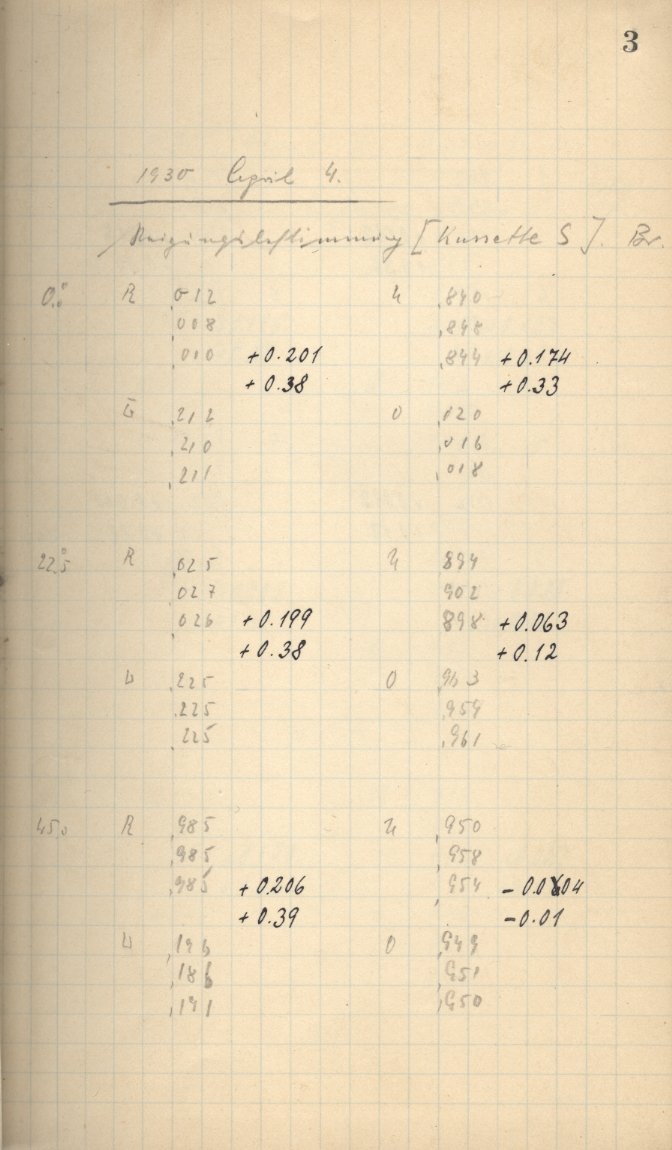 3
1930 April 4.
Neigungsbestimmung [Kassette S]. Br.
0.°0 R ,012 U ,840
,008 ,848
,010 +0.201 ,844 +0.174
+0.38 +0.33
L ,212 O ,020
,210 ,016
,211 ,018
22.°5 R ,025 U 894
,027 902
,026 +0.199 898 +0.063
+0.38 +0.12
L ,225 O ,963
,225 ,959
,225 ,961
45.0 R ,985 U ,950
,985 ,958
,985 +0.206 ,954 -0.004
+0.39 -0.01
L ,196 O ,949
,186 ,951
,191 ,950